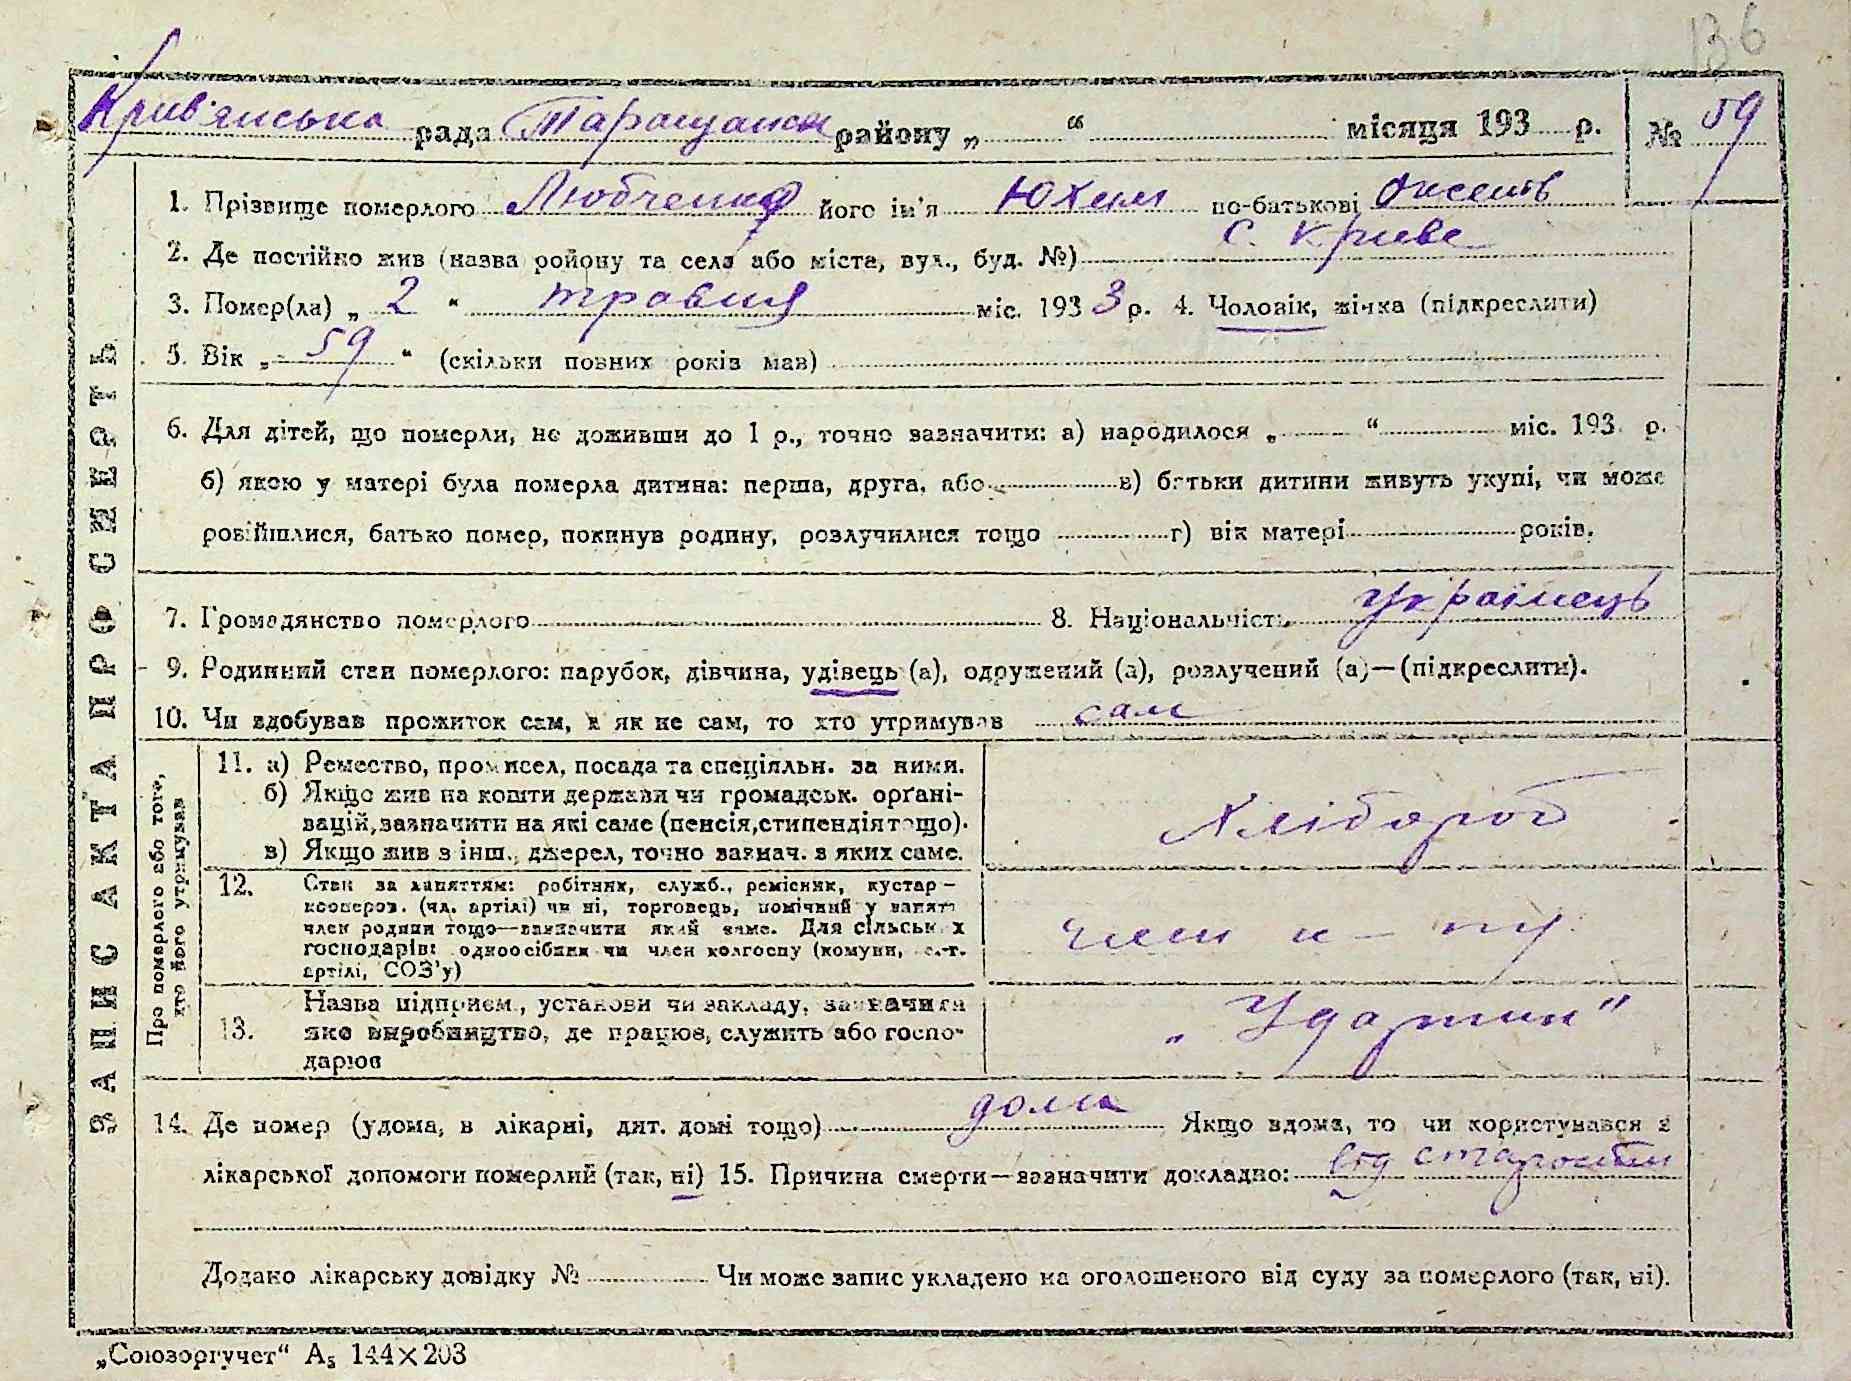 136
Крив'янська рада Таращанськ району „ “ місяця 193 р. № 59
1. Прізвище померлого Любченко його ім'я Юхим по-батькові Оксент
2. Де постійно жив (назва району та села або міста, вул., буд. №) с. Криве
3. Помер(ла) „ 2 “ травня міс. 1933 р. 4. Чоловік, жінка (підкреслити)
5. Вік „ 59 “ (скільки повних років мав)
6. Для дітей, що померли, не доживши до 1 р., точно зазначити: а) народилося „ “ міс. 193 р.
б) якою у матері була померла дитина: перша, друга, або в) батьки дитини живуть укупі, чи може
розійшлися, батько помер, покинув родину, розлучилися тощо г) вік матері років.
7. Громадянство померлого 8. Національність українець
9. Родинний стан померлого: парубок, дівчина, удівець (а), одружений (а), розлучений (а)—(підкреслити).
10. Чи здобував прожиток сам, а як не сам, то хто утримував сам
11. а) Ремество, промисел, посада та спеціяльн. за ними.
б) Якщо жив на кошти держави чи громадськ. орґані-
зацій, зазначити на які саме (пенсія, стипендія тощо).
в) Якщо жив з інш., джерел, точно зазнач. з яких саме.
Хлібороб
12. Стан за заняттям: робітник, служб., ремісник, кустар—
кооперов. (чл. артілі) чи ні, торговець, помічний у занятт
член родини тощо—зазначити який саме. Для сільських
господарів: одноосібник чи член колгоспу (комуни, с.-г.
артілі, СОЗ'у)
член к-пу
13. Назва підприєм., установи чи закладу, зазначити
яке виробництво, де працює, служить або госпо-
дарює
„Ударник"
14. Де помер (удома, в лікарні, дит. домі тощо) дома Якщо вдома, то чи користувався з
лікарської допомоги померлий (так, ні) 15. Причина смерти—зазначити докладно: від старости
Додано лікарську довідку № Чи може запис укладено на оголошеного від суду за померлого (так, ні).
ЗАПИС АКТА ПРО СМЕРТЬ
Про померлого або того,
хто його утримував
„Союзоргучет“ А₅ 144×203